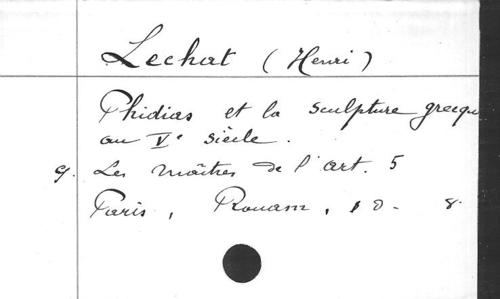 Lechat (Henri)
Phidias et la sculpture grecqu
au Vᵉ siècle.
9. Les maîtres de l'art. 5
Paris, Rouam, 8.